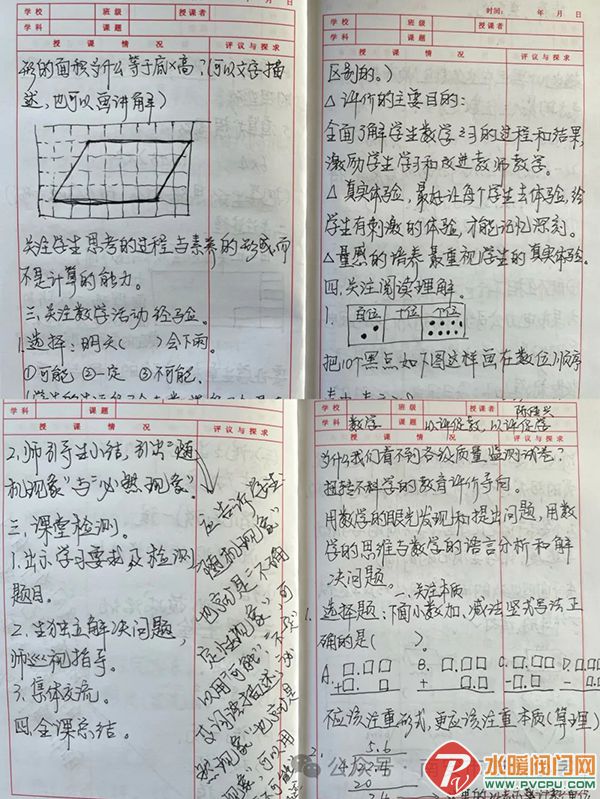 年 月 日
学校 班级 授课者
学科 课题
授 课 情 况 评议与探求
形的面积为什么等于底×高?(可以文字描
述,也可以画讲解)
关注学生思考的过程与素养的形成,而
不是计算的能力。
三.关注数学活动经验。
1.选择:明天( )会下雨。
①可能 ②一定 ③不可能.
时间: 年 月 日
学校 班级 授课者
学科 课题
授 课 情 况 评议与探求
区别的。)
△评价的主要目的:
全面了解学生数学学习的过程和结果,
激励学生学习和改进教师教学。
△真实体验,最好让每个学生去体验,给
学生有刺激的体验,才能记忆深刻.
△量感的培养最重视学生的真实体验.
四.关注阅读理解。
1. 百位 十位 个位
把10个黑点如下图这样画在数位顺序
学科 课题
授 课 情 况 评议与探求
2.师引导生小结,引出"随
机现象"与"必然现象"
三.课堂检测。
1.出示学习要求及检测
题目.
2.生独立解决问题,
师巡视指导。
3.集体交流。
四.全课总结。
应告诉学生
"随机现象"
也就是"不确
定性现象",可
以用"可能""不
学校 班级 授课者
学科 数学 课题 以评促教,以评促学
授 课 情 况 评议与探求
为什么我们看不到各级质量监测试卷?
扭转不科学的教育评价导向。
用数学的眼光发现和提出问题,用数
学的思维与数学的语言分析和解
决问题。
一.关注本质
1.选择题:下面小数加、减法竖式写法正
确的是( )。
A. B. C. D.
不应该注重形式,更应该注重本质(算理)
2.
5.6
20
水暖阀门网
WWW.PVCPU.COM